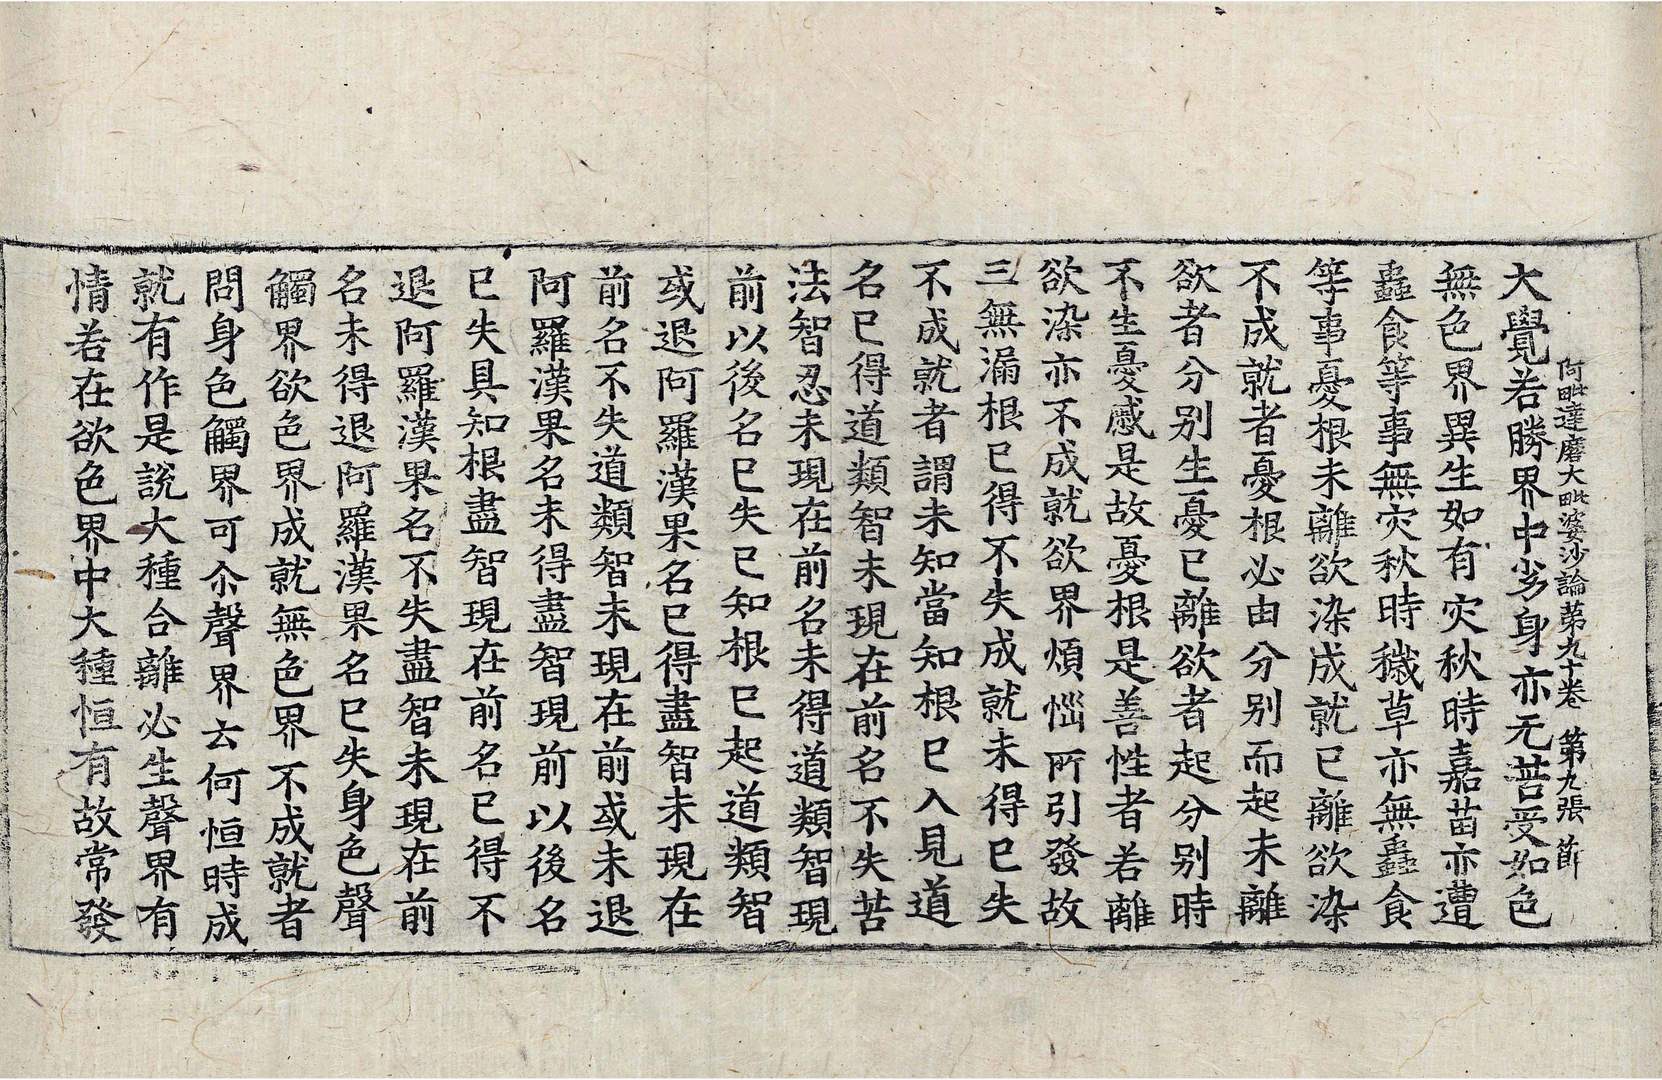 阿毗達磨大毗婆沙論第九十卷 第九張 節
大覺若勝界中劣身亦无苦受如色
無色界異生如有灾秋時嘉苗亦遭
蟲食等事無灾秋時穢草亦無蟲食
等事憂根未離欲染成就已離欲染
不成就者憂根必由分别而起未離
欲者分别生憂已離欲者起分别時
不生憂慼是故憂根是善性者若離
欲染亦不成就欲界煩惱所引發故
三無漏根已得不失成就未得已失
不成就者謂未知當知根已入見道
名已得道類智未現在前名不失苦
法智忍未現在前名未得道類智現
前以後名已失已知根已起道類智
或退阿羅漢果名已得盡智未現在
前名不失道類智未現在前或未退
阿羅漢果名未得盡智現前以後名
已失具知根盡智現在前名已得不
退阿羅漢果名不失盡智未現在前
名未得退阿羅漢果名已失身色聲
觸界欲色界成就無色界不成就者
問身色觸界可尒聲界云何恒時成
就有作是說大種合離必生聲界有
情若在欲色界中大種恒有故常發